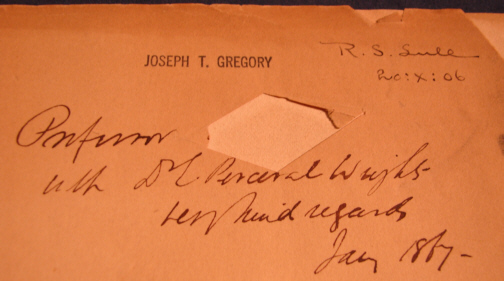 JOSEPH T. GREGORY
R. S. Lull
20:X:06
Professor
with Dr E. Perceval Wright
very kind regards
Jany 1867